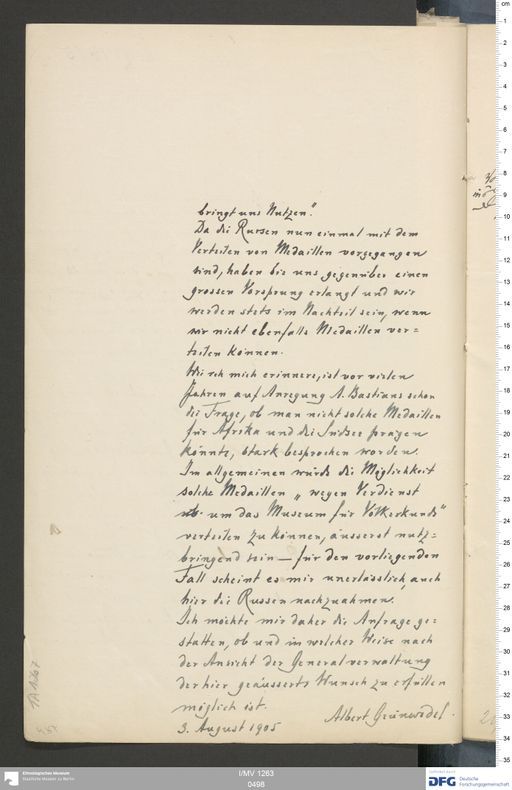 bringt uns Nutzen".
Da die Russen nun einmal mit dem
Verteilen von Medaillen vorgegangen
sind, haben sie uns gegenüber einen
grossen Vorsprung erlangt und wir
werden stets im Nachteil sein, wenn
wir nicht ebenfalls Medaillen ver=
teilen können.
Wie ich mich erinnere, ist vor vielen
Jahren auf Anregung A. Bastians schon
die Frage, ob man nicht solche Medaillen
für Afrika und die Südsee prägen
könnte, stark besprochen worden.
Im allgemeinen würde die Möglichkeit
solche Medaillen „wegen Verdienst
um das Museum für Völkerkunde"
verteilen zu können, äusserst nutz=
bringend sein — für den vorliegenden
Fall scheint es mir unerlässlich, auch
hier die Russen nachzuahmen.
Ich möchte mir daher die Anfrage ge=
statten, ob und in welcher Weise nach
der Ansicht der Generalverwaltung
der hier geäusserte Wunsch zu erfüllen
möglich ist.
Albert Grünwedel.
3. August 1905
I/MV 1263
0498
Ethnologisches Museum
Staatliche Museen zu Berlin
DFG
Deutsche
Forschungsgemeinschaft